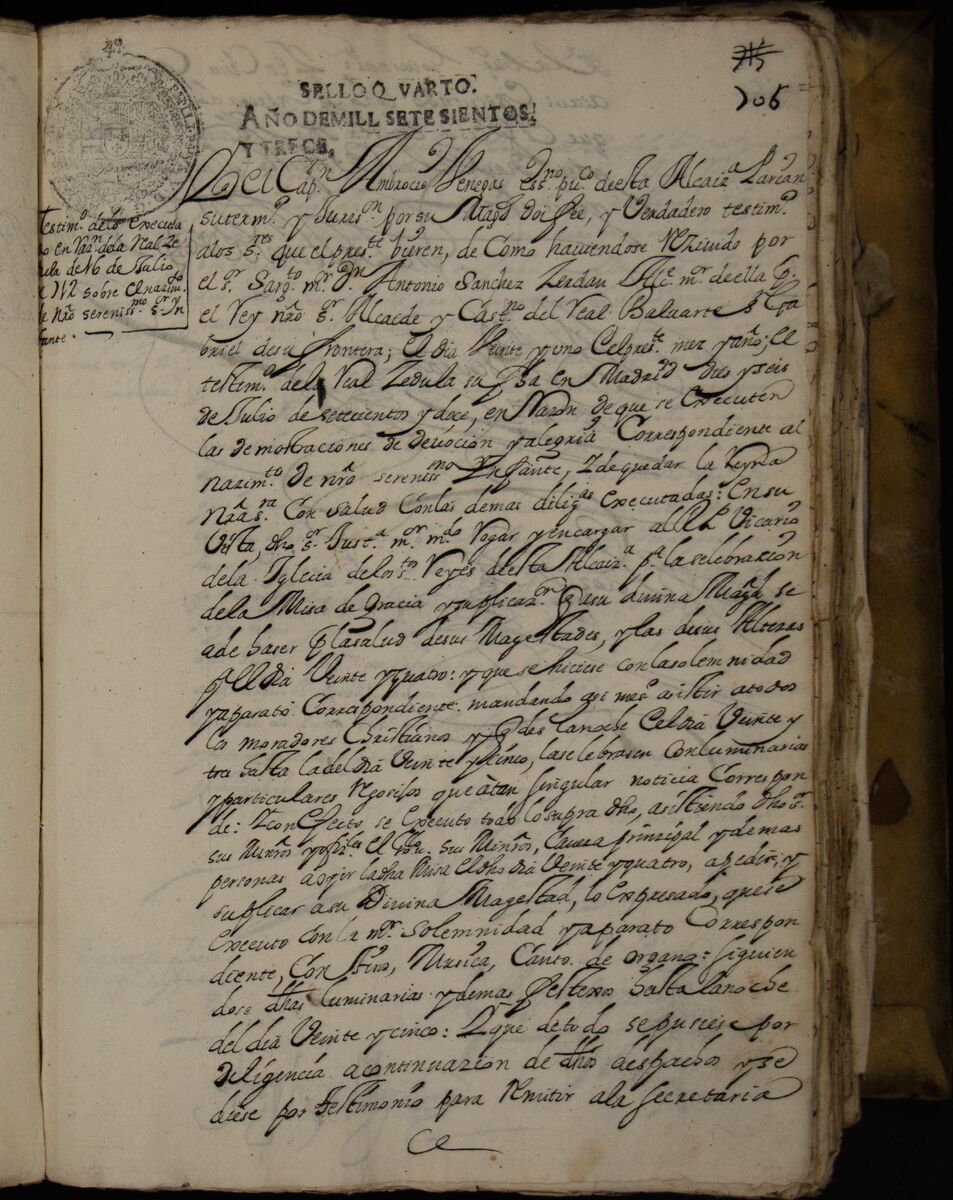 705
SELLO QVARTO.
AÑO DEMILL SETESIENTOS,
Y TRECE.
Testimº delo executa
do en razⁿ dela Real Ze
dula de 16 de Julio
de 712 sobre el nazimᵗᵒ
de nrõ serenissᵐᵒ Sʳ Yn
fante.
El Capⁿ Ambrocio Venegas Essⁿᵒ puᶜᵒ deesta Alcaizᵃ Parian
sutermº y Jurisⁿ por su Magᵈ doi fee, y Verdadero testimº
alos sʳᵉˢ que el presᵗᵉ bieren, de Como haviendose Reziuido por
el Sʳ Sargᵗᵒ mʳ Dⁿ Antonio Sanchez Zerdan Alᶜᵉ mʳ deella pʳ
el Rey nrõ Sʳ Alcaide y Castⁿᵒ del Real Baluarte Sⁿ Ga
briel desu frontera; el dia Veinte y uno del presᵗᵉ mez y año; el
testimº dela Real Zedula su fha en Madrid dies y seis
de Julio de setecientos y doce, en Razon de que se executen
las demostraciones de devocion y alegria Correspondiente al
nazimᵗᵒ De nrõ serenissᵐᵒ Ynfante, y de quedar la Reyna
Nrã sʳᵃ Con salud Con las demas diligᵃˢ executadas: En su
Vista, dho Sʳ Justᵃ mʳ mᵈᵒ Rogar y encargar al R. P. Vicario
dela Iglecia delos Sᵗᵒˢ Reyes deesta Alcaizᵃ pᵃ la selebrazion
dela Misa de gracia y suplicazⁿ q asu divina Magᵈ se
ade haser pʳ la salud desus Magestades, y las desus Altezas
pʳ el dia Veinte y quatro: y que se hiciese con la solemnidad
y aparato Correspondiente mandando asi mesº asistir atodos
los moradores Christianos y q desde lanoche del dia Veinte y
tres hasta la del dia Veinte y cinco, la selebrasen Con luminarias
y particulares regosijos que atan singular noticia Correspon
de: Y con efecto se executo todo lo supra dho, asistiendo dho Sʳ
sus Minrõs y el sus Minrõs, Cavesa principal y demas
personas a oyr la dha Misa el dho dia Veinte y quatro, a pedir, y
suplicar a su Divina Magestad, lo expresado, que se
executo con la mʳ solemnidad y aparato Correspon
diente, Con tiros, Musica, Canto de organo: siguien
dose dhas luminarias y demas festexos hasta lanoche
del dia Veinte y cinco: Y que de todo se pusiese por
diligencia acontinuazion de dhos despachos y se
diese por testimonio para remitir ala secretaria